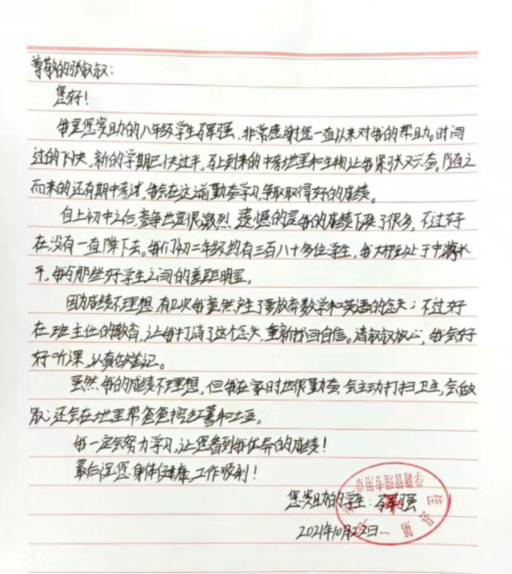 尊敬的张叔叔：
您好！
我是您资助的八年级学生强，非常感谢您一直以来对我的帮助。时间
过的飞快，新的学期已快过半，马上到来的中考地里和生物让我紧张又亢奋。随之
而来的还有期中考试，我会在这前勤奋学习，争取取得好的成绩。
自上初中之后，竞争也是很激烈，遗憾的是我的成绩下跌了很多，不过好
在没有一直降下去。我们初三年级约有三百八十多位学生，我大概处于中游水
平，我与那些好学生之间的差距明显。
因为成绩不理想，有几次我竟然产生了要放弃数学和英语的念头；不过好
在班主任的教育，让我打消了这个念头，重新找回自信。请叔叔放心，我会好
好听课，认真做笔记。
虽然我的成绩不理想，但我在家时也很勤奋，会主动打扫卫生，会做
饭；还会在地里帮爸爸挖红薯和土豆。
我一定会努力学习，让您看到我优异的成绩！
最后祝您身体健康，工作顺利！
您资助的学生：强
2021年10月22日
学籍管理专用章
县第一